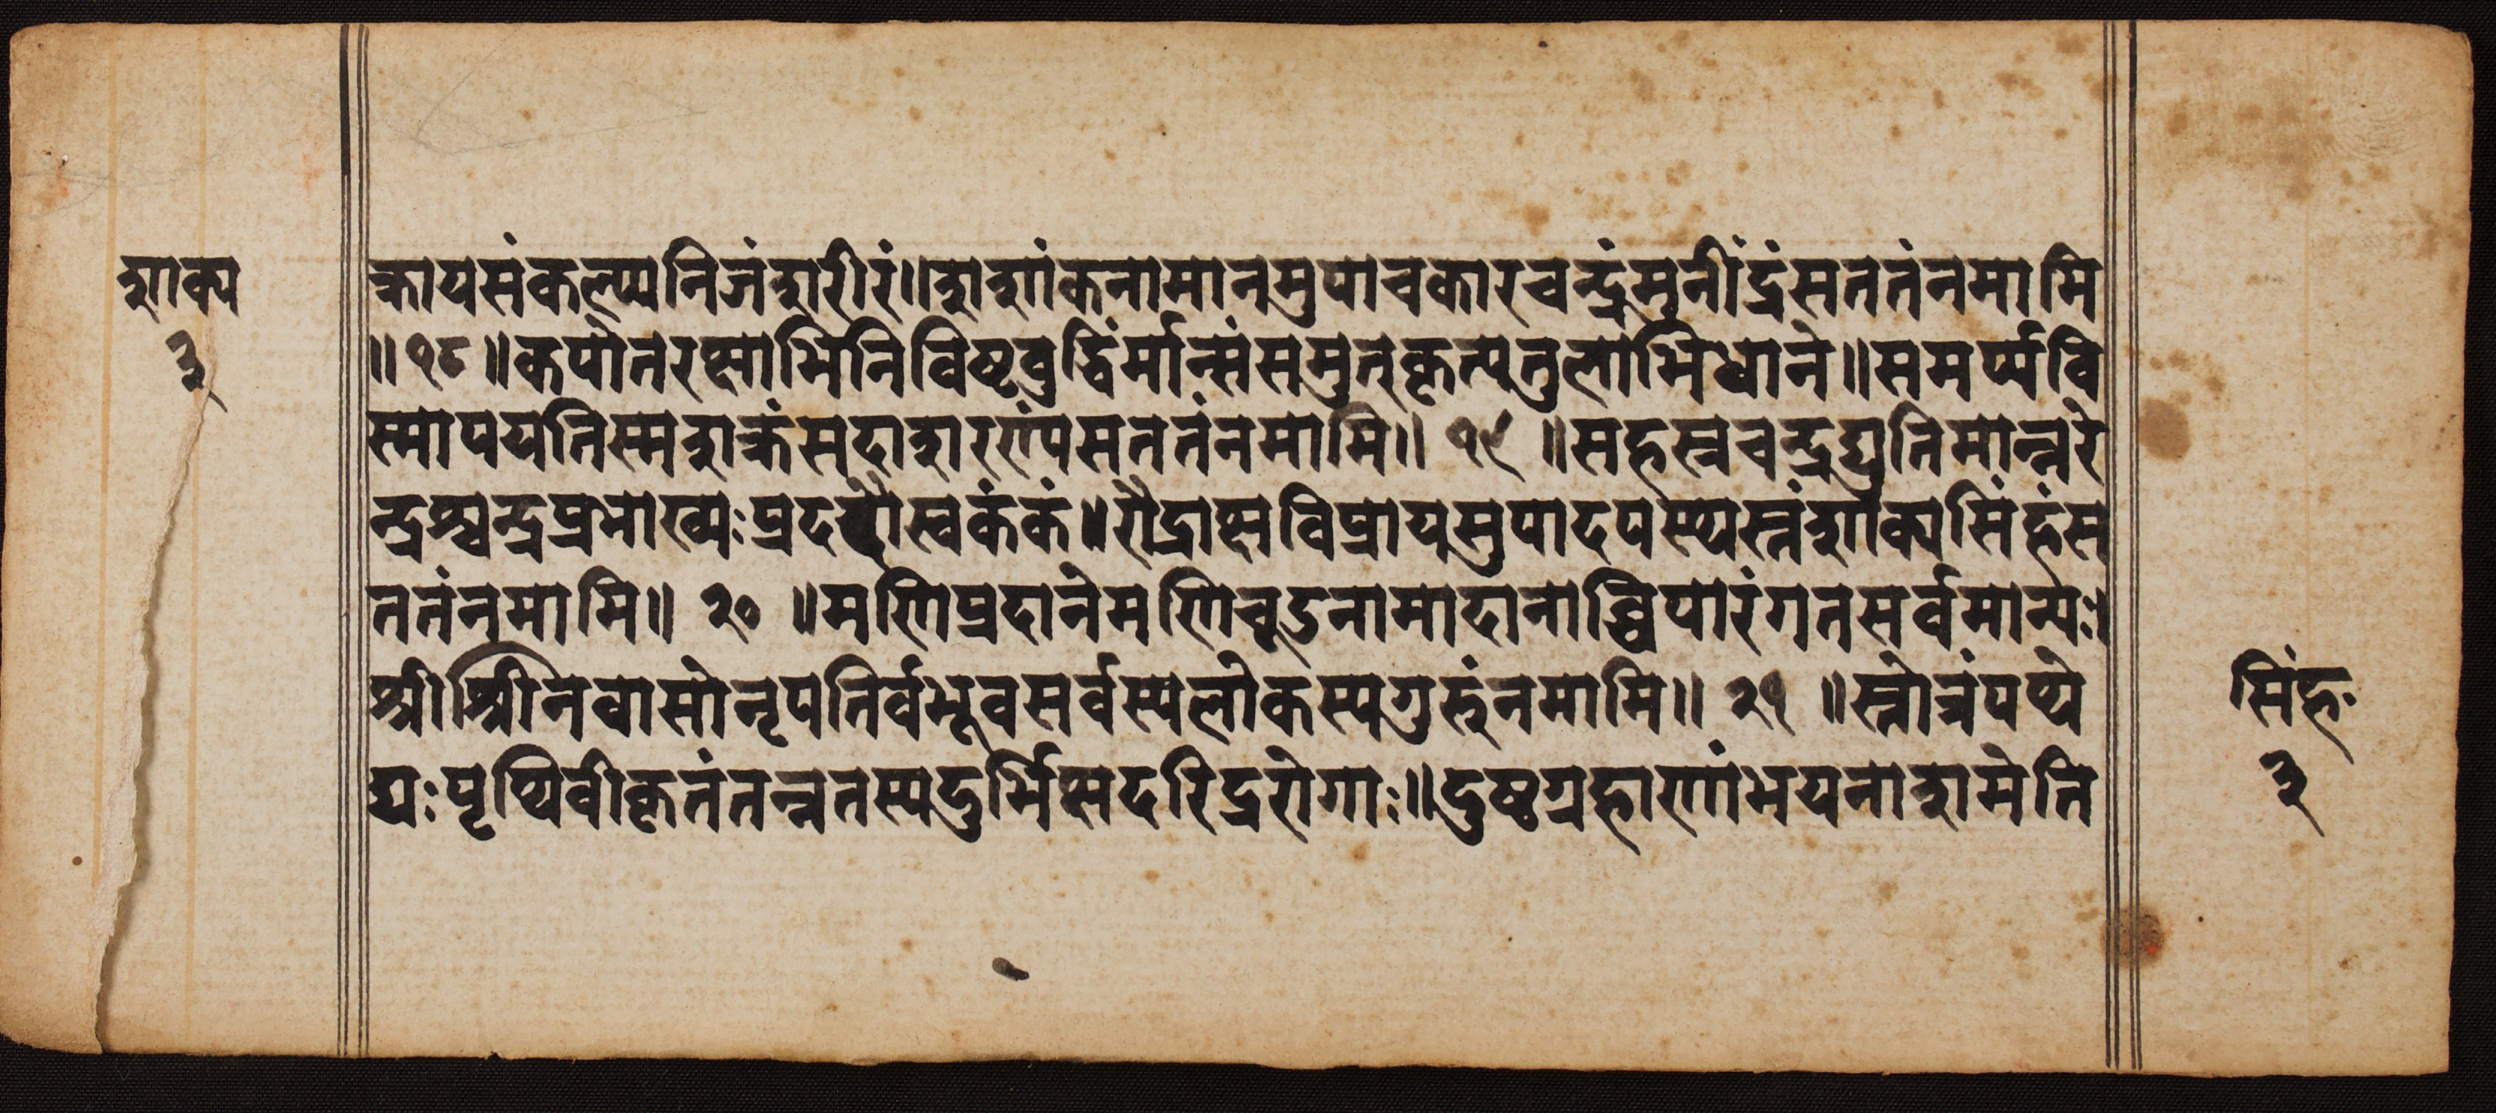 शाक्य
३
क्रायसंकल्प्यनिजंशरीरं॥शशांकनामानमुपाचकारचन्द्रंमुनींद्रंसततंनमामि
॥१८॥कपोतरक्षाभिनिविष्टबुद्धिंर्मान्संसमुत्कृत्यतुलाभिधाने॥समर्प्यवि
स्मापयतिस्मशक्रंसदाशरण्यंसततंनमामि॥१९॥सहस्रचन्द्रद्युतिमान्नरे
न्द्रश्चन्द्रप्रभाख्यःप्रददौस्वकंकं॥रौद्राक्षविप्रायमुपादपस्थस्तंशाक्यसिंहंस
ततंनमामि॥२०॥मणिप्रदानेमणिचूडनामादानाब्धिपारंगतसर्वमान्यः।
श्रीश्रीनिवासोनृपतिर्वभूवसर्वस्यलोकस्यगुरुंनमामि॥२१॥स्तोत्रंपठे
द्यःपृथिवीकृतंतन्नतस्यदुर्भिक्षदरिद्ररोगाः॥दुष्टग्रहाणांभयनाशमेति
सिंहः
३